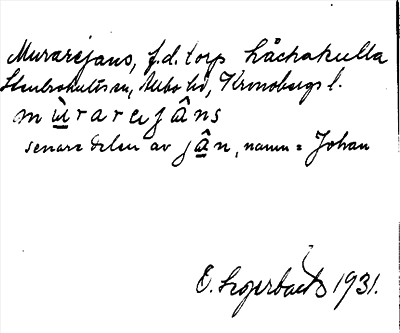 Murarejans, f.d. torp Håchakulla
Stenbrohults sn, Allbo hd, Kronobergs l.
mùrarejâns
senare delen av jân, namn = Johan
E. Segerbäck 1931.